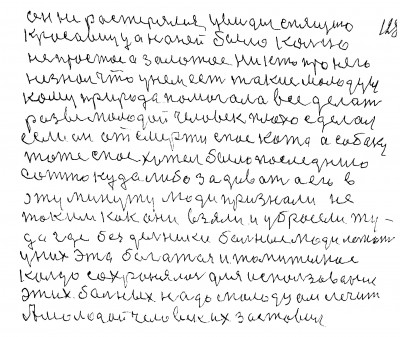 он не растерялся увидил спящую 128
Красавицу а на ней было Колцо
непростое а золотое Никто про него
незнал что умеест такие молодцу
кому природа помогала все делат
разве молодой человек плохо сделал
если он от смерти спос кота а собаку
тоже спос хотел было последнию
сотто куда либо задеват а его в
эту минуту люди признали не
таким как они взяли и убросели ту-
да где бездельники больные люди лежат
у них эта багатая и помитиное
Колцо сохронялос для использования
этих больных надо молодцам лечит
А молодой человек их заставил